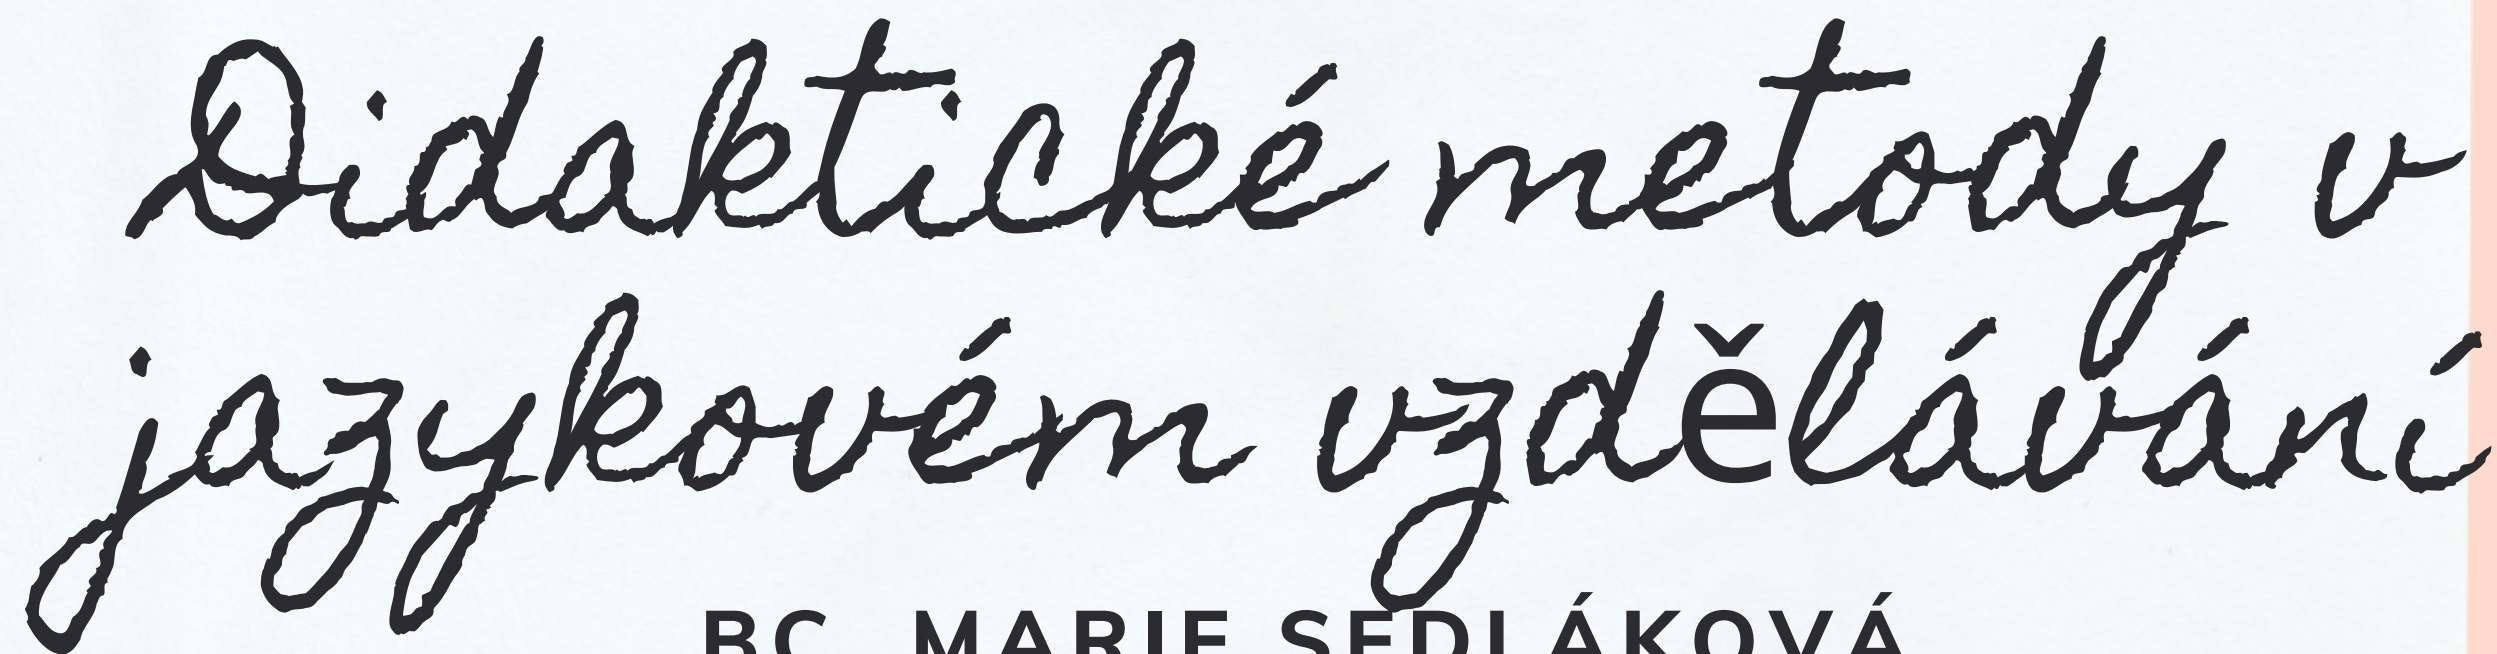 Didaktické metody v
jazykovém vzdělávání
BC. MARIE SEDLÁKOVÁ